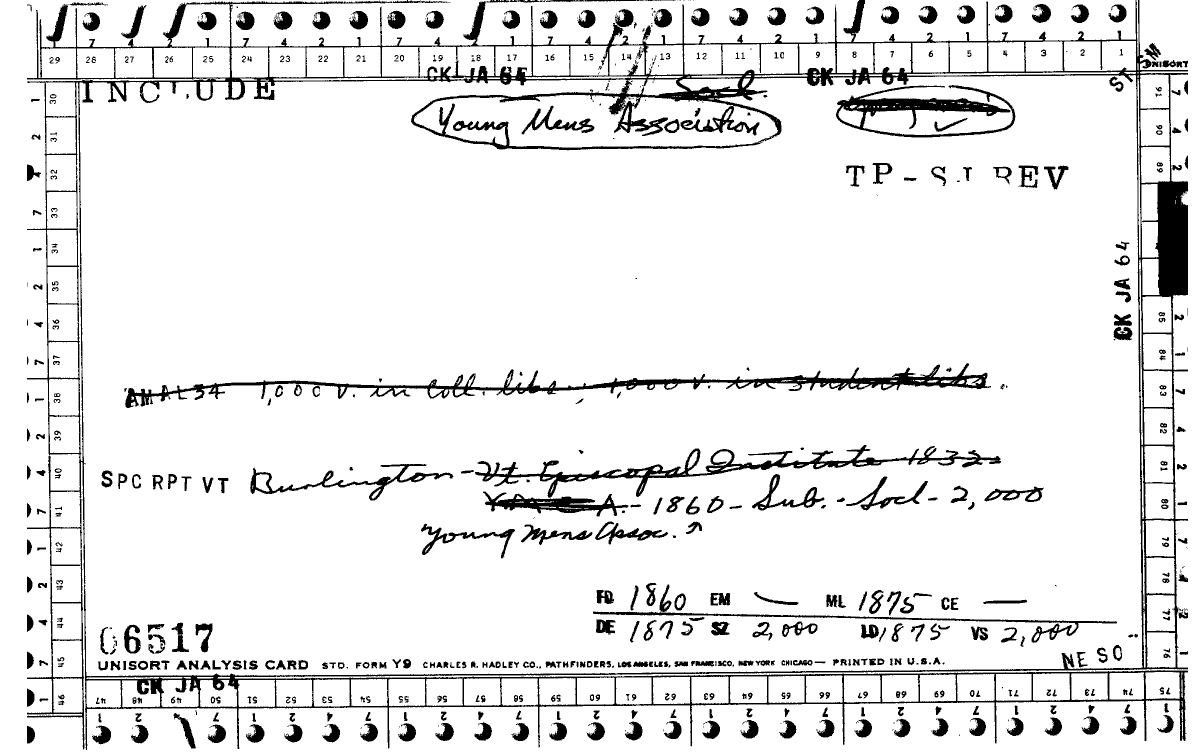 7 4 2 1 7 4 2 1 7 4 2 1 7 4 2 1 7 4 2 1 7 4 2 1 7 4 2 1
29 28 27 26 25 24 23 22 21 20 19 18 17 16 15 14 13 12 11 10 9 8 7 6 5 4 3 2 1
CK JA 64 CK JA 64
INCLUDE
Socl.
Young Mens Association
TP-SJ REV
CK JA 64
AMAL34 1,000 v. in coll. libs; 1,000 v. in student libs.
SPC RPT VT Burlington - Vt. Episcopal Institute 1832
YMCA - 1860 - Sub. - Socl - 2,000
Young Mens Assoc.
FD 1860 EM — ML 1875 CE —
DE 1875 SZ 2,000 LD 1875 VS 2,000
06517
NE SO
UNISORT ANALYSIS CARD STD. FORM Y9 CHARLES R. HADLEY CO., PATHFINDERS, LOS ANGELES, SAN FRANCISCO, NEW YORK CHICAGO — PRINTED IN U.S.A.
CK JA 64
47 48 49 50 51 52 53 54 55 56 57 58 59 60 61 62 63 64 65 66 67 68 69 70 71 72 73 74 75